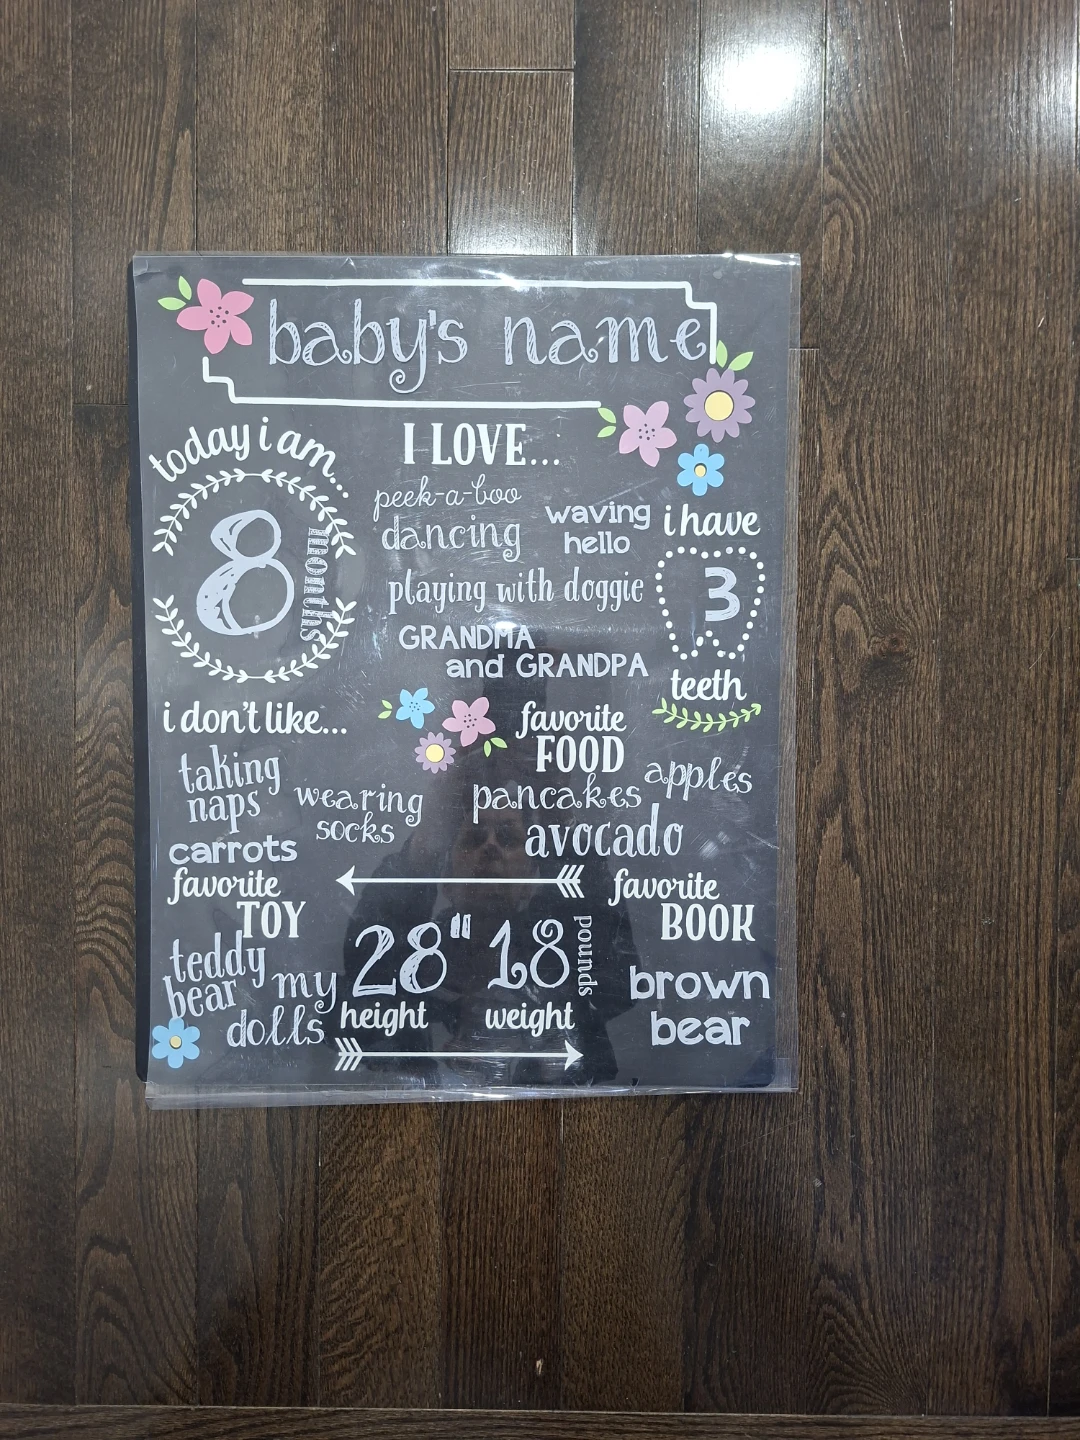 baby's name
today i am...
8
months
I LOVE...
peek-a-boo
dancing
waving
hello
playing with doggie
GRANDMA
and GRANDPA
i have
3
teeth
i don't like...
taking
naps
wearing
socks
carrots
favorite
FOOD
pancakes
apples
avocado
favorite
TOY
teddy
bear
my
dolls
28"
height
18
pounds
weight
favorite
BOOK
brown
bear